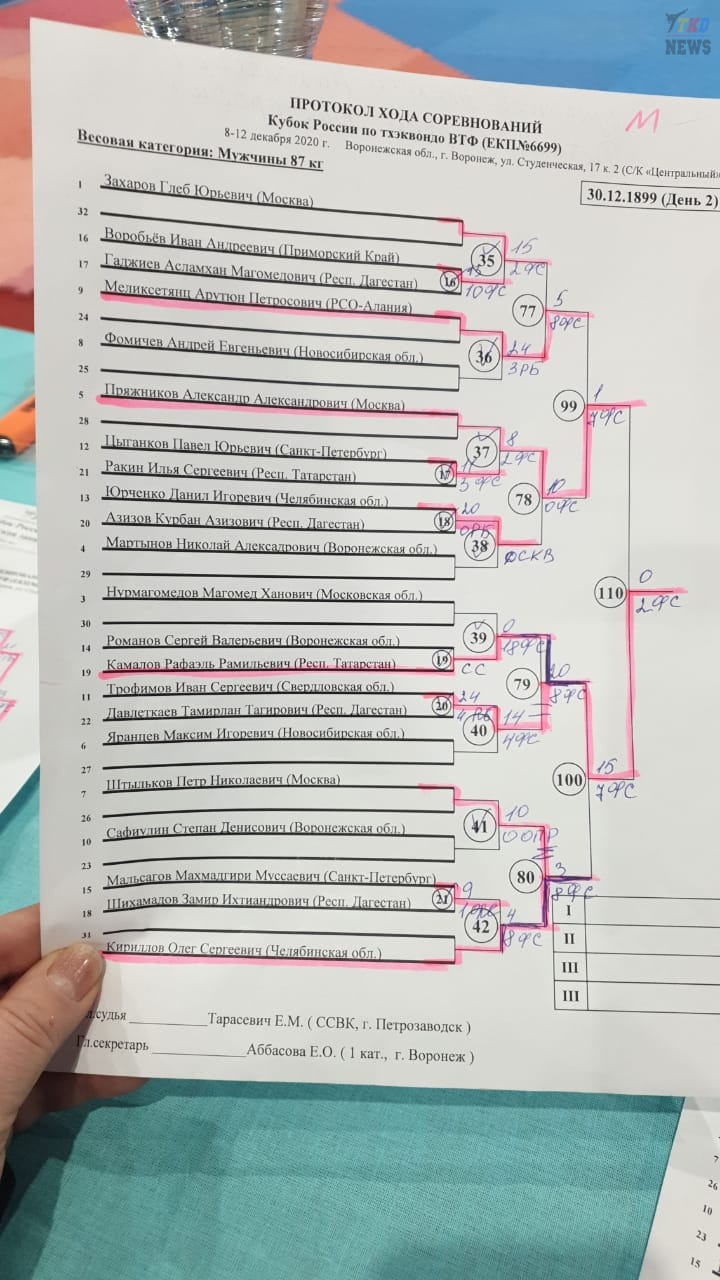 TKD
NEWS
М
ПРОТОКОЛ ХОДА СОРЕВНОВАНИЙ
Кубок России по тхэквондо ВТФ (ЕКП№6699)
8-12 декабря 2020 г. Воронежская обл., г. Воронеж, ул. Студенческая, 17 к. 2 (С/К «Центральный»
Весовая категория: Мужчины 87 кг
30.12.1899 (День 2)
1 Захаров Глеб Юрьевич (Москва)
32
16 Воробьёв Иван Андреевич (Приморский Край)
17 Гаджиев Асламхан Магомедович (Респ. Дагестан)
9 Меликсетянц Арутюн Петросович (РСО-Алания)
24
8 Фомичев Андрей Евгеньевич (Новосибирская обл.)
25
5 Пряжников Александр Александрович (Москва)
28
12 Цыганков Павел Юрьевич (Санкт-Петербург)
21 Ракин Илья Сергеевич (Респ. Татарстан)
13 Юрченко Данил Игоревич (Челябинская обл.)
20 Азизов Курбан Азизович (Респ. Дагестан)
4 Мартынов Николай Алексадрович (Воронежская обл.)
29
3 Нурмагомедов Магомед Ханович (Московская обл.)
30
14 Романов Сергей Валерьевич (Воронежская обл.)
19 Камалов Рафаэль Рамильевич (Респ. Татарстан)
11 Трофимов Иван Сергеевич (Свердловская обл.)
22 Давлеткаев Тамирлан Тагирович (Респ. Дагестан)
6 Яранцев Максим Игоревич (Новосибирская обл.)
27
7 Штыльков Петр Николаевич (Москва)
26
10 Сафиулин Степан Денисович (Воронежская обл.)
23
15 Мальсагов Махмадгири Муссаевич (Санкт-Петербург)
18 Шихамадов Замир Ихтиандрович (Респ. Дагестан)
31
Кириллов Олег Сергеевич (Челябинская обл.)
16
10ФС
17
3ФС
18
20
19
СС
20
24
21
9
35
15
2ФС
36
24
3РБ
37
8
2ФС
38
39
0
18ФС
40
14
4ФС
41
10
42
4
8ФС
77
5
8ФС
78
10
0ФС
79
20
8ФС
80
3
8ФС
99
1
7ФС
100
15
7ФС
110
0
2ФС
I
II
III
III
судья Тарасевич Е.М. ( ССВК, г. Петрозаводск )
Гл.секретарь Аббасова Е.О. ( 1 кат., г. Воронеж )
7
26
10
23
15